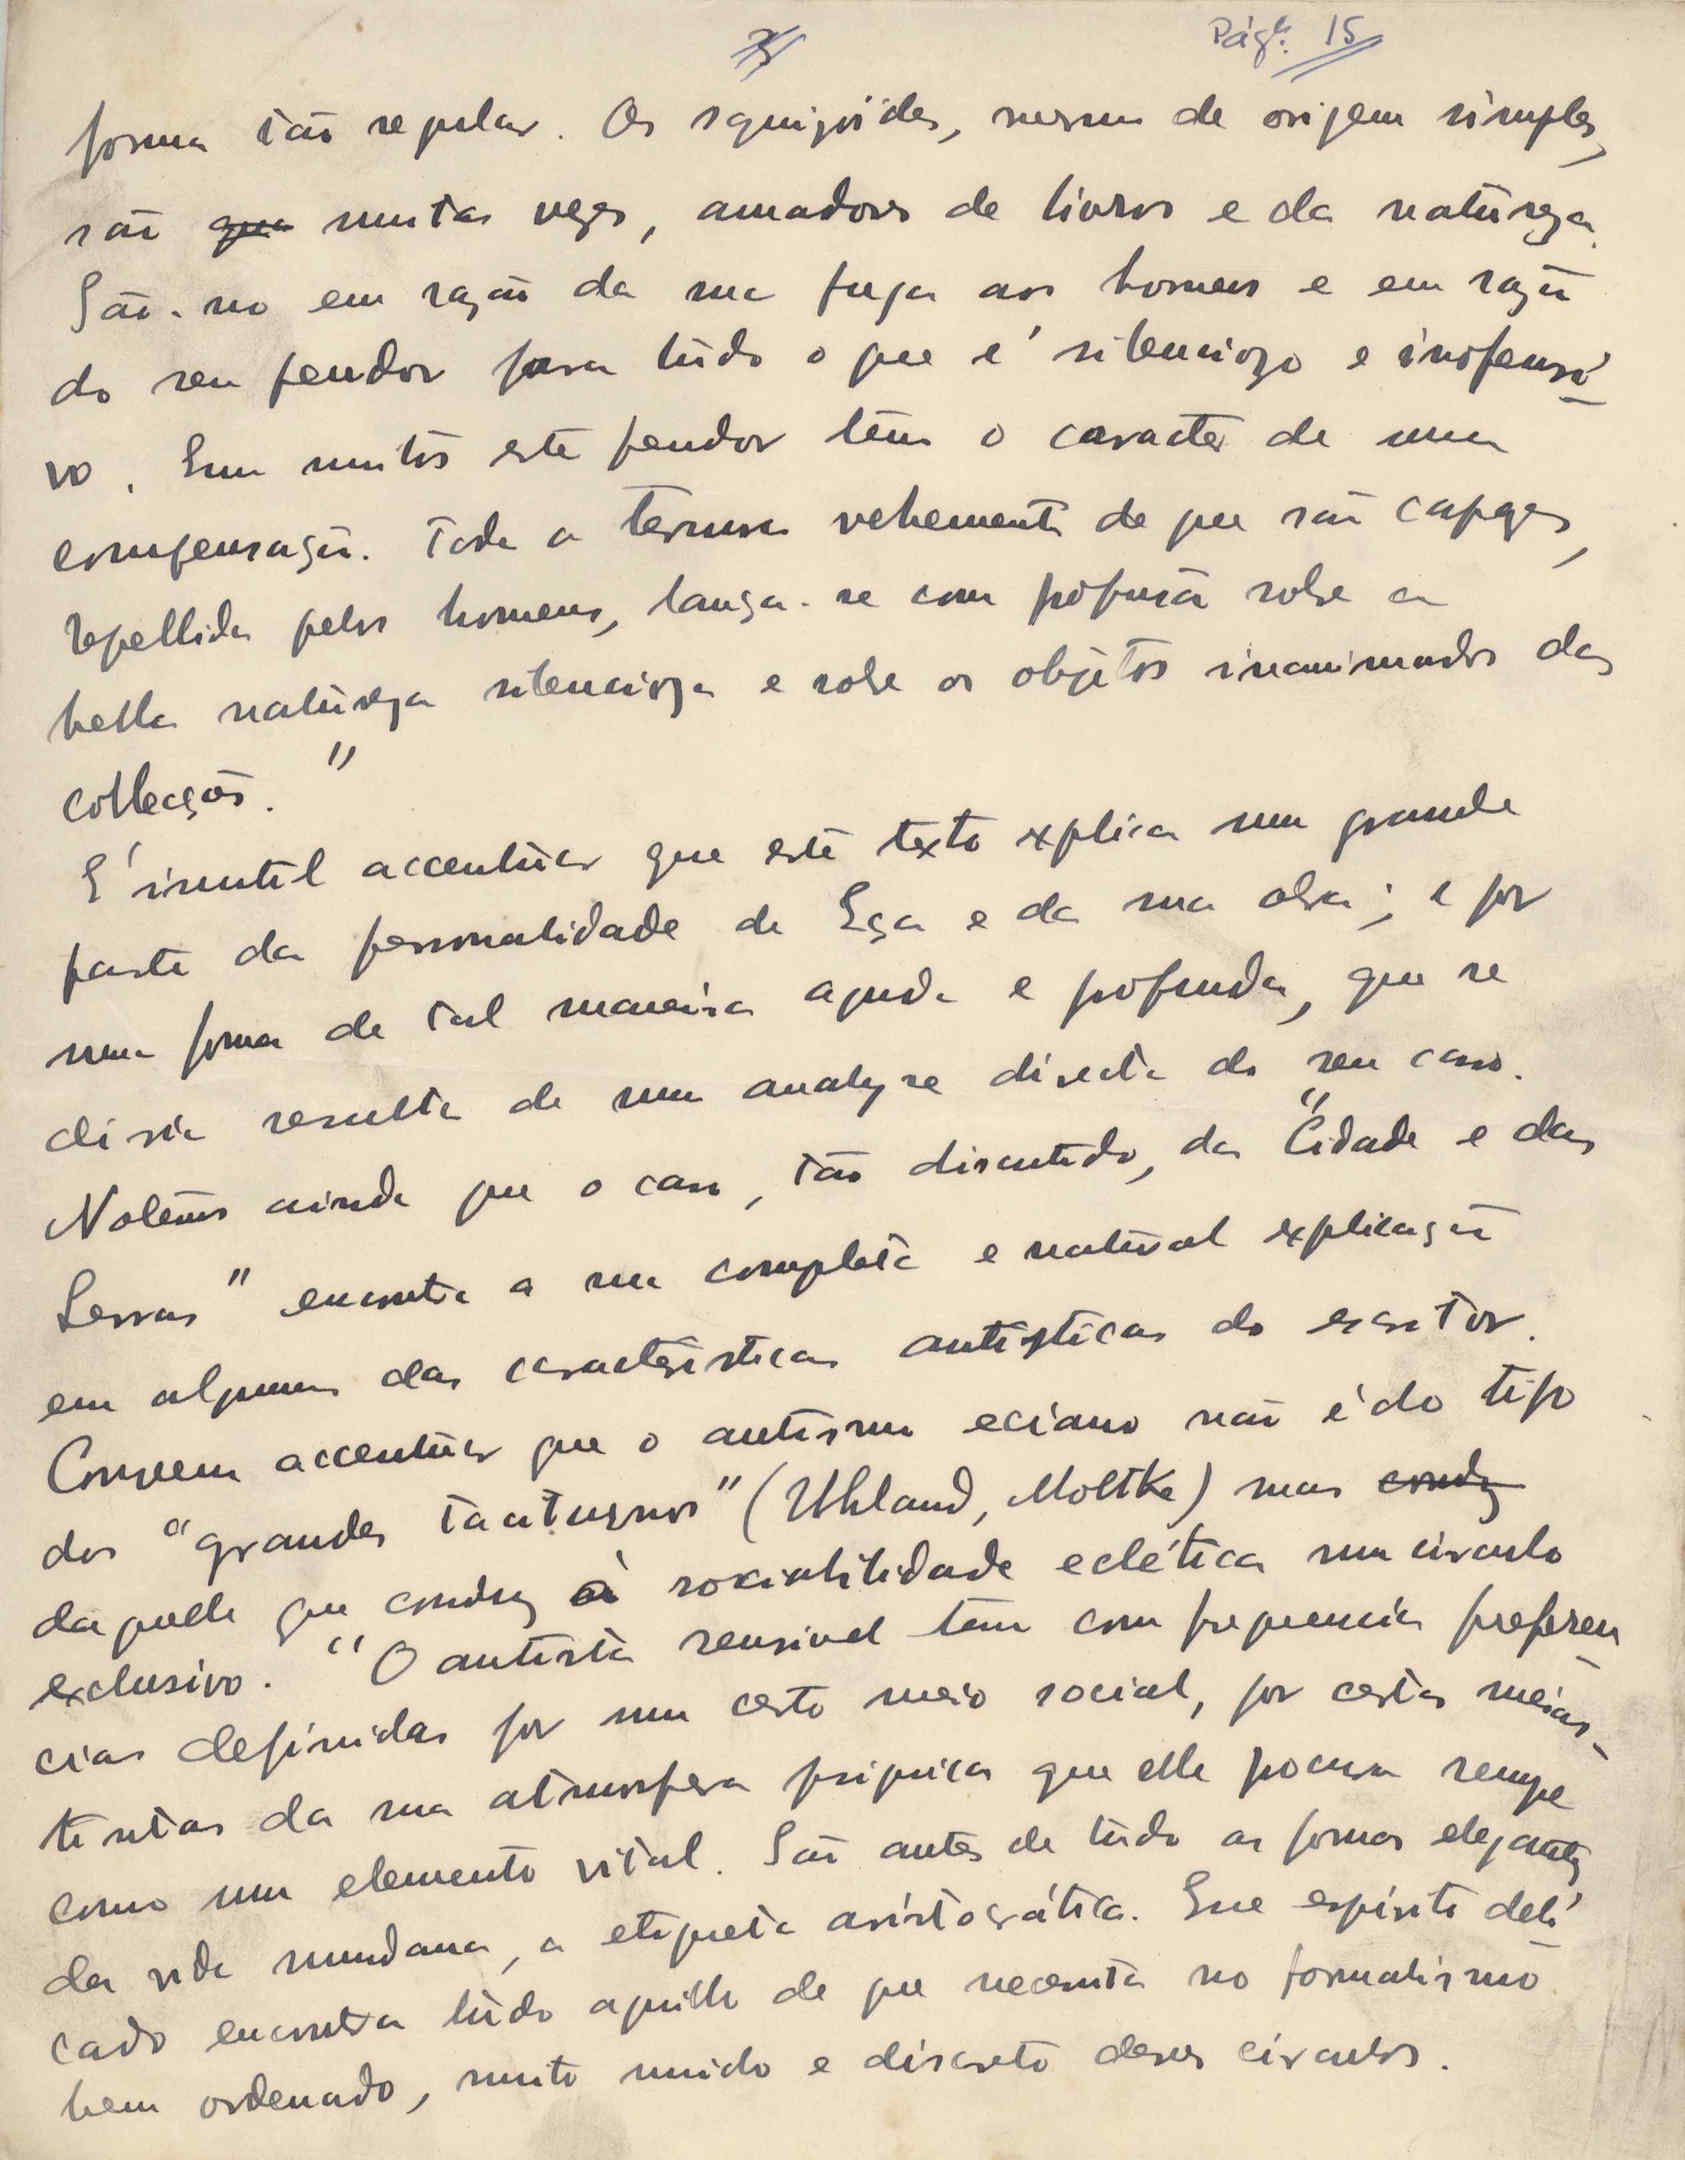 Pág.: 15
forma tão regular. Os squizóides, mesmo de origem simples,
são muitas vezes, amadores de livros e da natureza.
São-no em razão da sua fuga aos homens e em razão
do seu pendor para tudo o que é silencioso e inofensi-
vo. Em muitos este pendor tem o caracter de uma
compensação. Toda a ternura vehemente de que são capazes,
repellida pelos homens, lança-se com profusão sobre a
bella natureza silenciosa e sobre os objetos inanimados das
collecções."
É inutil accentuar que este texto explica uma grande
parte da personalidade de Eça e da sua obra; e por
uma forma de tal maneira aguda e profunda, que se
diria resulta de uma analyse directa do seu caso.
Notemos ainda que o caso, tão discutido, da "Cidade e das
Serras" encontra a sua completa e natural explicação
em algumas das caracteristicas autisticas do escritor.
Convem accentuar que o autismo eciano não é do tipo
dos "grandes taciturnos" (Uhland, Moltke) mas conduz
daquelle que conduz à sociabilidade eclética num circulo
exclusivo. "O autista sensivel tem com frequencia preferen-
cias definidas por um certo meio social, por certas meias-
tintas da sua atmosfera psiquica que elle procura sempre
como um elemento vital. São antes de tudo as formas elegantes
da vida mundana, a etiqueta aristocrática. Esse espirito deli-
cado encontra tudo aquillo de que necessita no formalismo
bem ordenado, muito unido e discreto desses circulos.